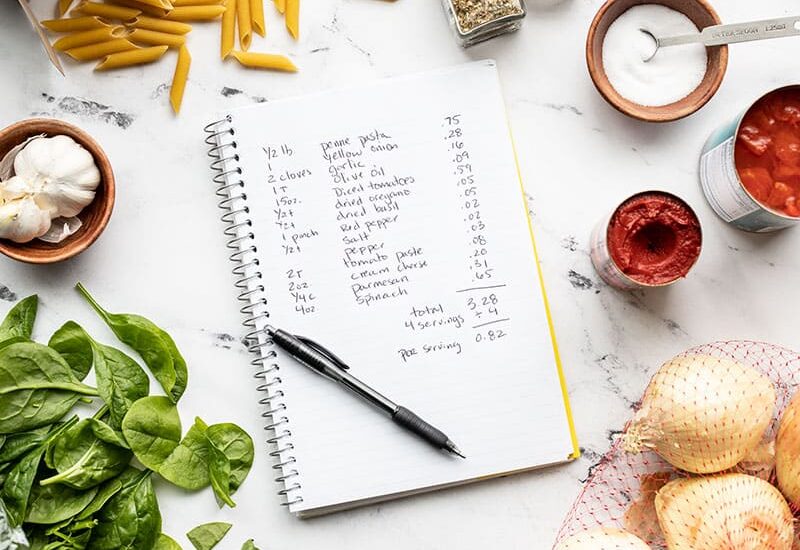 ½ lb penne pasta .75
1 yellow onion .28
2 cloves garlic .16
1 T olive oil .09
15oz. Diced tomatoes .59
½ t dried oregano .05
½ t dried basil .05
1 pinch Red pepper .02
½ t salt .02
pepper .03
2T tomato paste .08
2oz cream cheese .20
¼ c parmesan .31
4oz spinach .65
total 3.28
4 servings ÷ 4
per serving 0.82